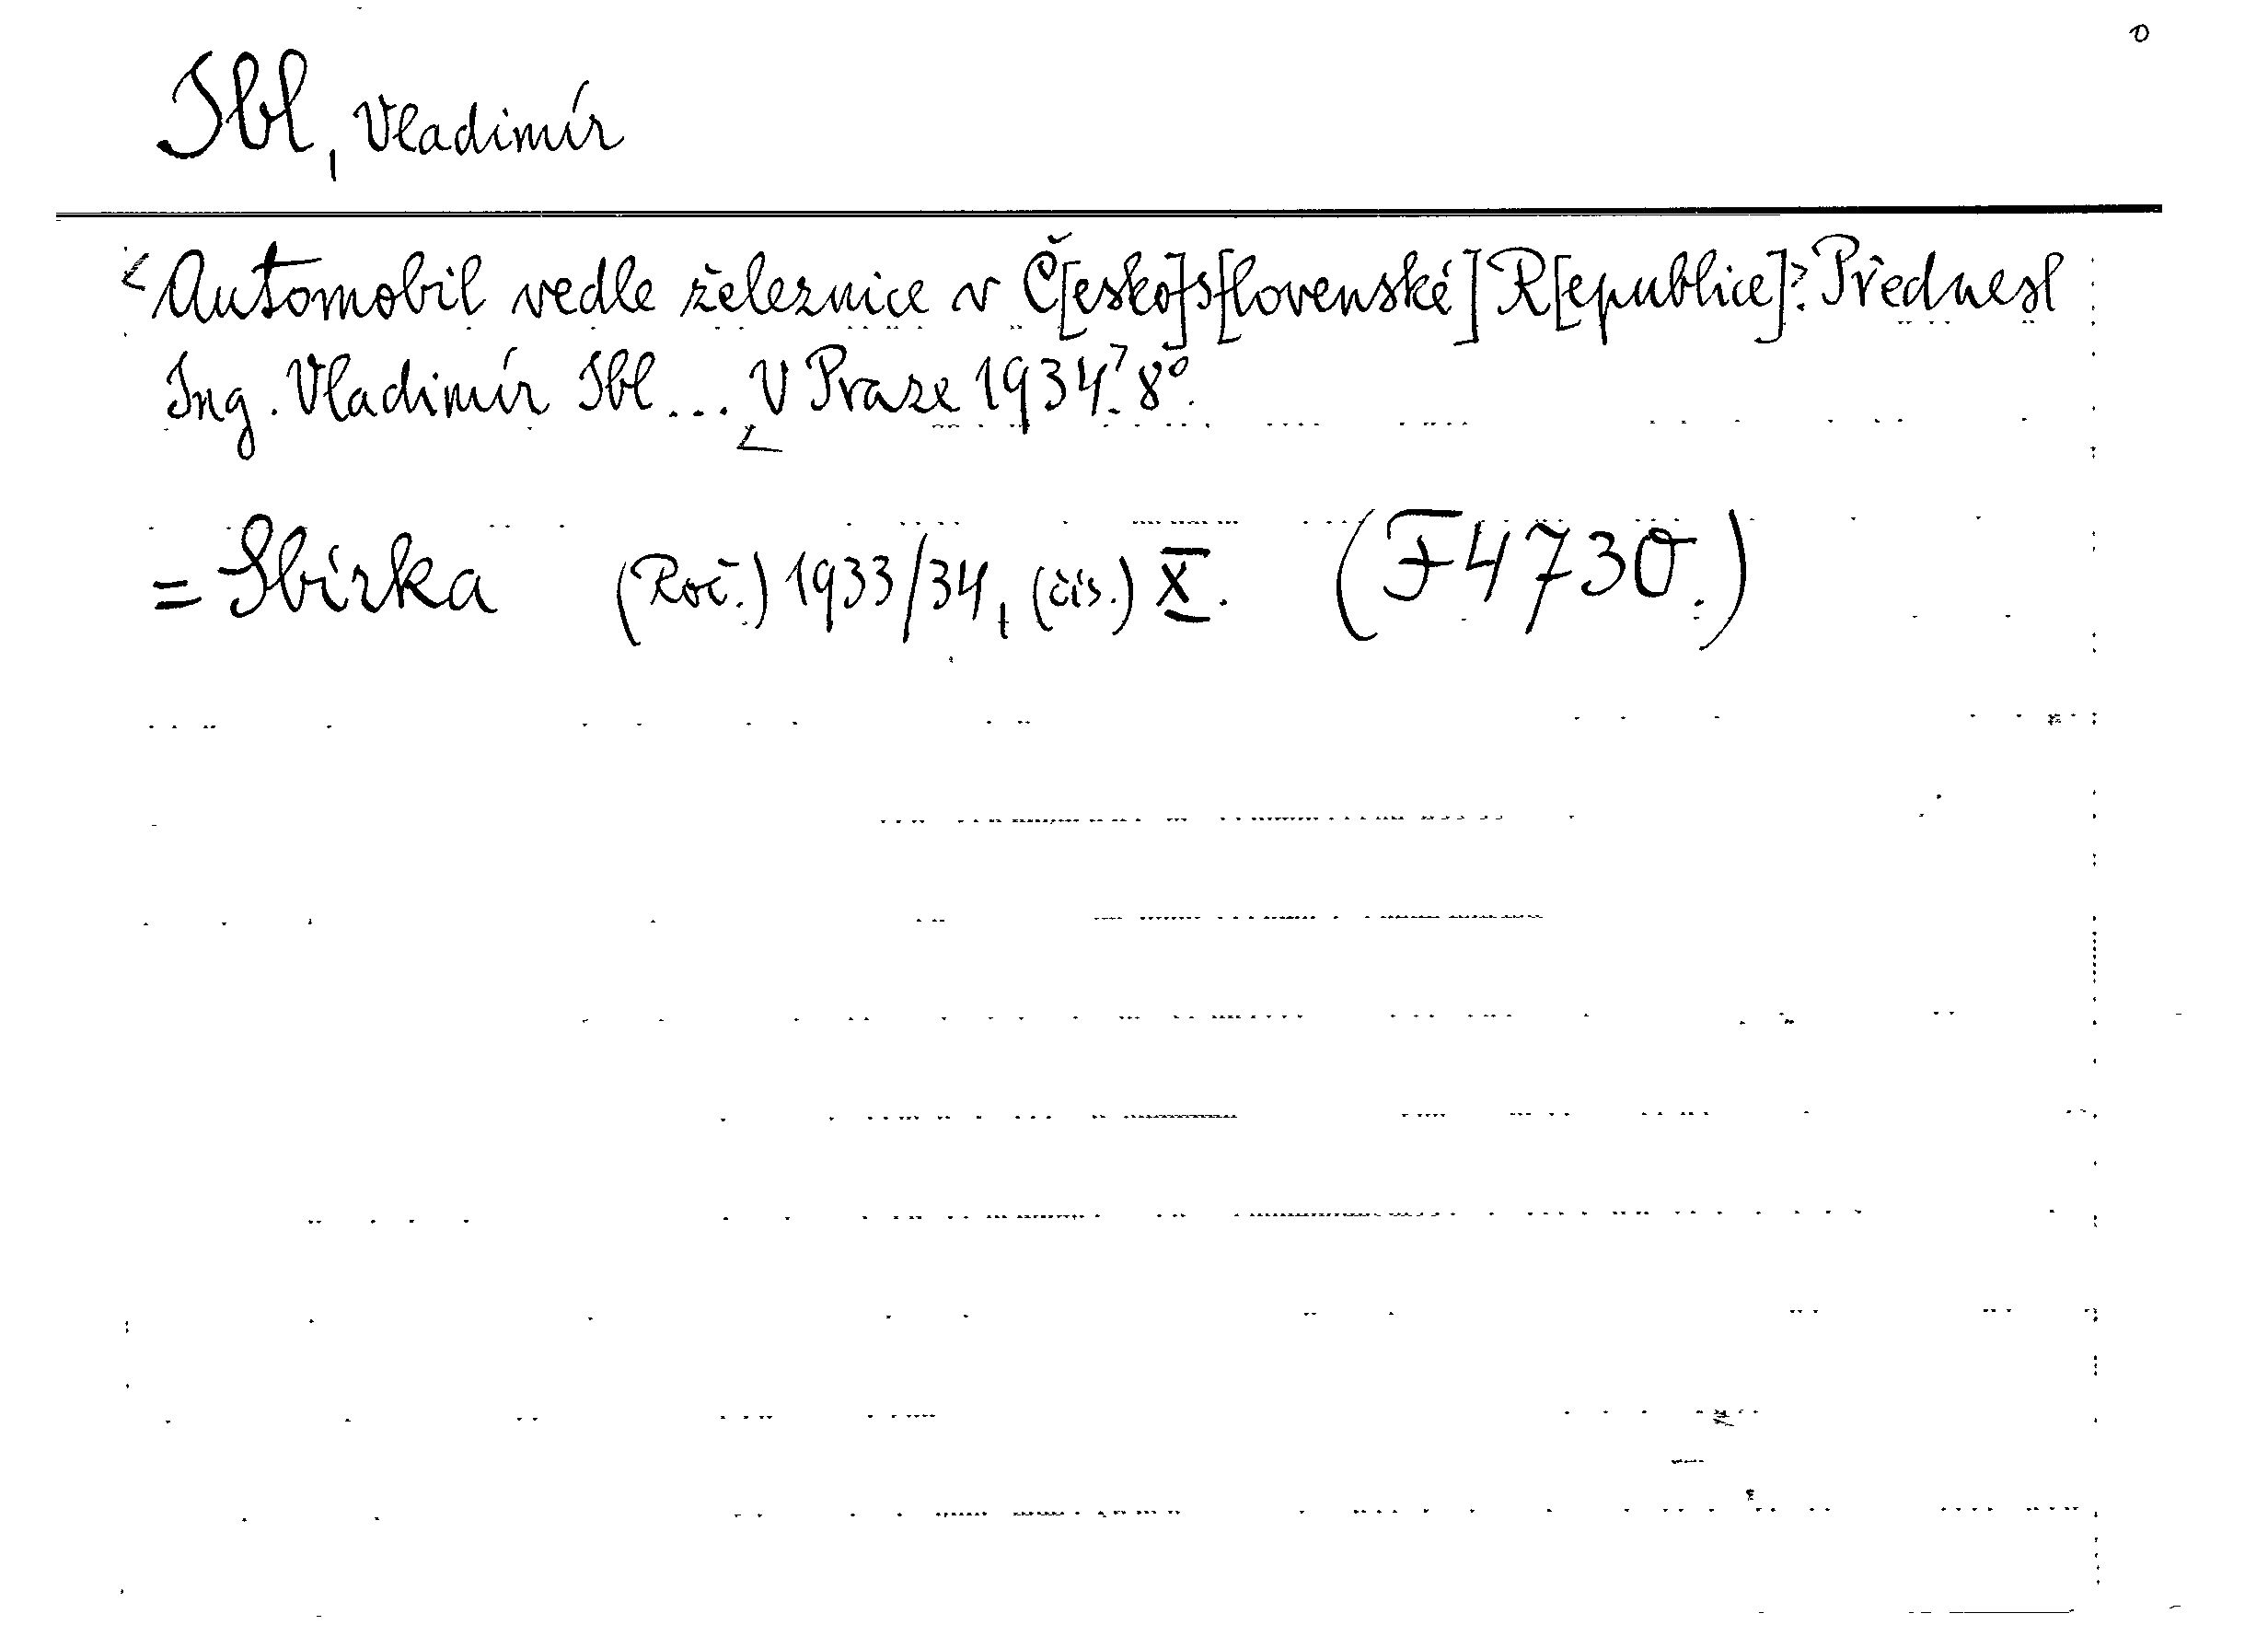 o
Ibl, Vladimír
<Automobil vedle železnice v Č[esko]s[lovenské] R[epublice]>. Přednesl
Ing. Vladimír Ibl... <V Praze 1934>. 8°.
= Sbírka (Roč.) 1933/34, (čís.) X. (F 4730.)